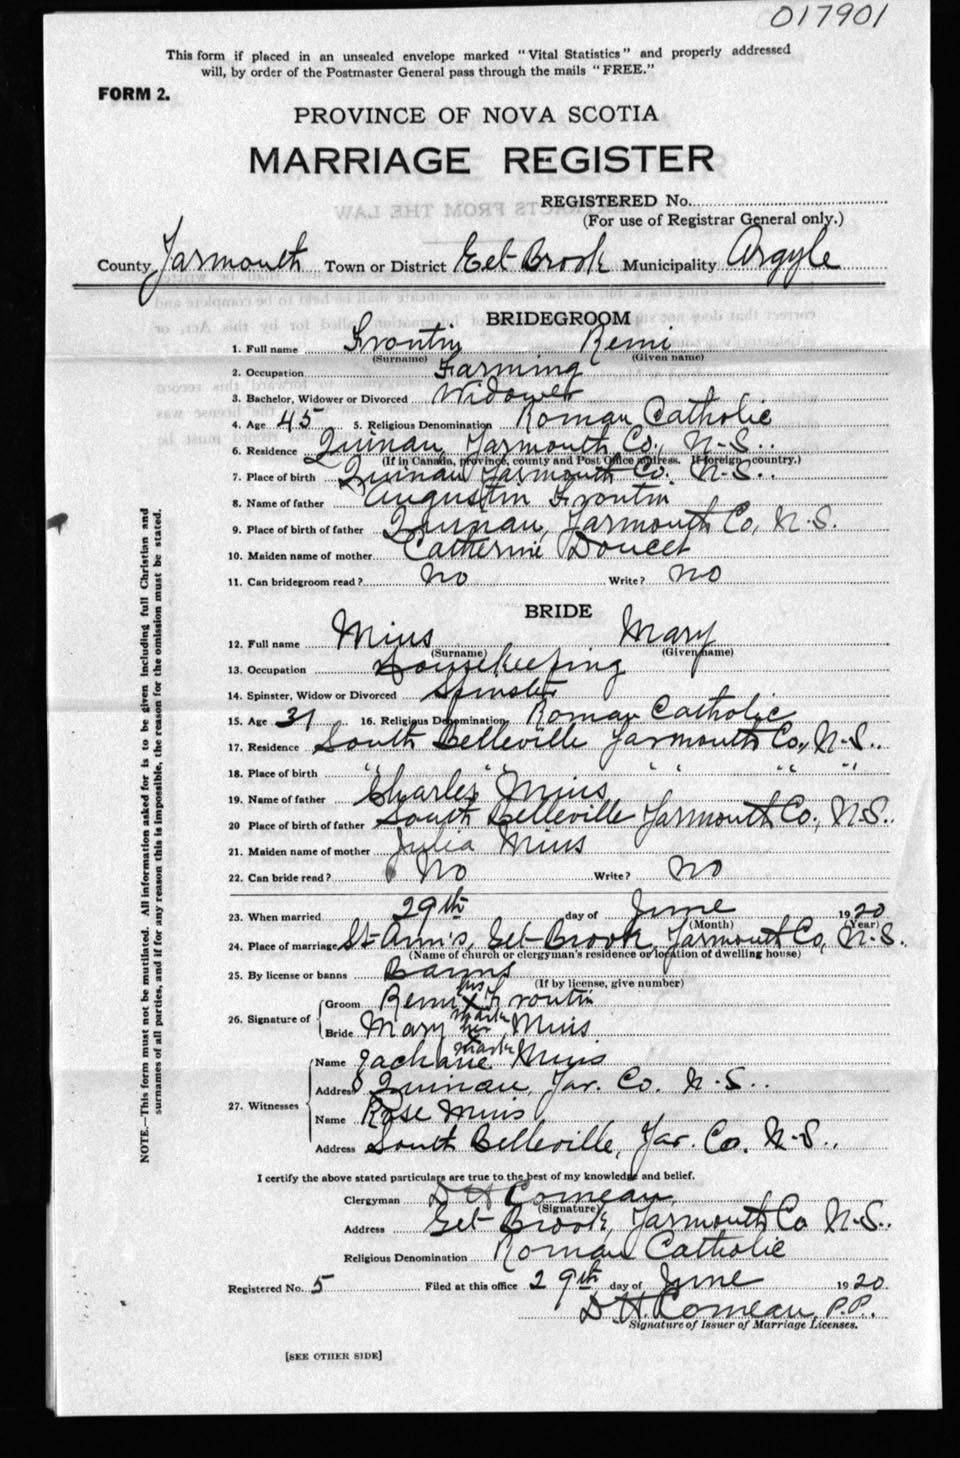 017901
This form if placed in an unsealed envelope marked "Vital Statistics" and properly addressed
will, by order of the Postmaster General pass through the mails "FREE."
FORM 2.
PROVINCE OF NOVA SCOTIA
MARRIAGE REGISTER
REGISTERED No.
(For use of Registrar General only.)
County Yarmouth Town or District Eel-Brook Municipality Argyle
BRIDEGROOM
1. Full name Frontin Remi
(Surname) (Given name)
2. Occupation Farming
3. Bachelor, Widower or Divorced Widower
4. Age 45 5. Religious Denomination Roman Catholic
6. Residence Quinan, Yarmouth Co., N.S..
(If in Canada, province, county and Post Office address. If foreign, country.)
7. Place of birth Quinan Yarmouth Co. N.S..
8. Name of father Augustin Frontin
9. Place of birth of father Quinan, Yarmouth Co, N.S.
10. Maiden name of mother Catherine Doucet
11. Can bridegroom read? No Write? No
BRIDE
12. Full name Mius Mary
(Surname) (Given name)
13. Occupation Housekeeping
14. Spinster, Widow or Divorced Spinster
15. Age 31 16. Religious Denomination Roman Catholic
17. Residence South Belleville Yarmouth Co., N.S..
18. Place of birth " " " " "
19. Name of father Charles Mius
20 Place of birth of father South Belleville Yarmouth Co., N.S..
21. Maiden name of mother Julia Mius
22. Can bride read? No Write? No
23. When married 29th day of June 1920
(Month) (Year)
24. Place of marriage St-Ann's, Eel-Brook, Yarmouth Co, N.S.
(Name of church or clergyman's residence or location of dwelling house)
25. By license or banns Banns
(If by license, give number)
26. Signature of Groom Remi his X mark Frontin
Bride Mary her X mark Mius
27. Witnesses Name Mius
Address Quinan, Yar. Co. N.S..
Name Rose Mius
Address South Belleville, Yar. Co. N.S..
I certify the above stated particulars are true to the best of my knowledge and belief.
Clergyman D H Comeau,
(Signature)
Address Eel-Brook, Yarmouth Co N.S..
Religious Denomination Roman Catholic
Registered No. 5 Filed at this office 29th day of June 1920
D H. Comeau, P.P.
Signature of Issuer of Marriage Licenses.
[SEE OTHER SIDE]
NOTE.—This form must not be mutilated. All information asked for is to be given including full Christian and
surnames of all parties, and if for any reason this is impossible, the reason for the omission must be stated.